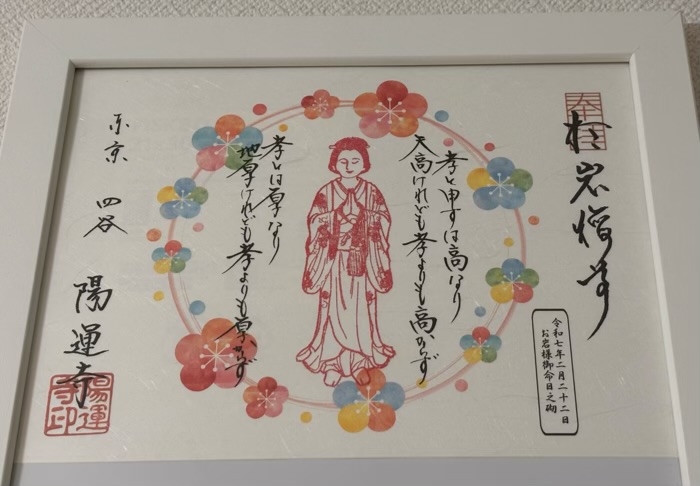 奉拝
於岩稲荷
令和七年二月二十二日
お岩様御命日之砌
孝と申すは高なり
天高けれども孝よりも高からず
孝とは厚なり
地厚けれども孝よりも厚からず
東京 四谷
陽運寺
陽運寺印